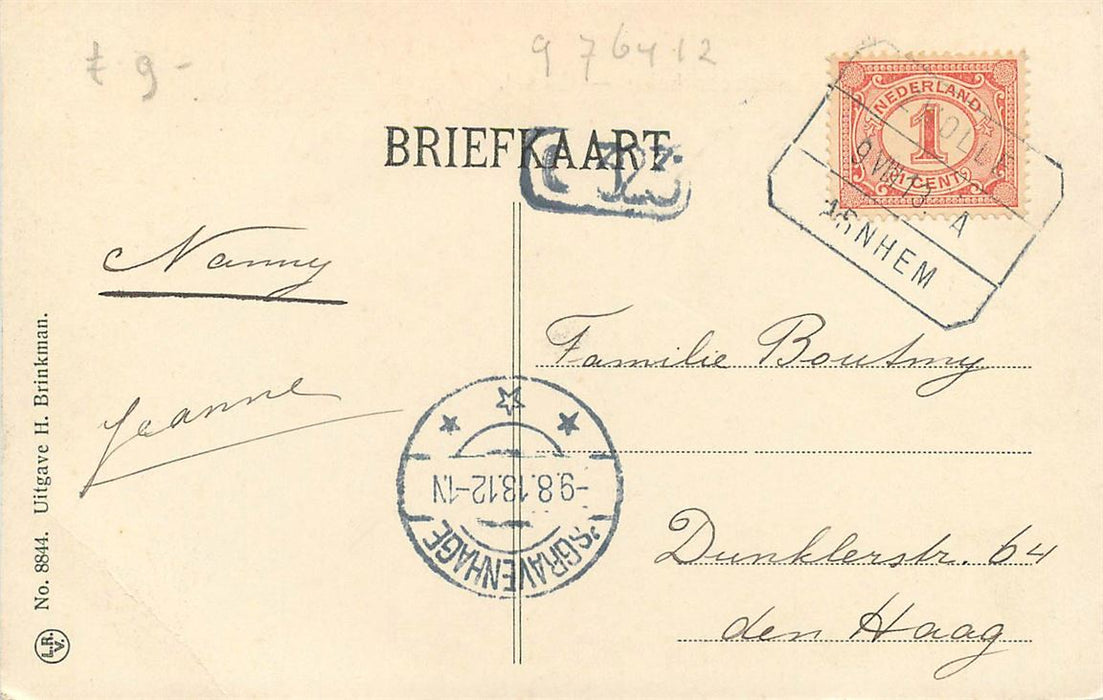 ₤ 9 -
976412
BRIEFKAART
322
NEDERLAND
1
CENT
9.VIII.13. A
ARNHEM
Nanny
Jeanne
Familie Boutmy
Dunklerstr. 64
den Haag
-9.8.13.12-1N
'S GRAVENHAGE
No. 8844. Uitgave H. Brinkman.
L.R.
V.